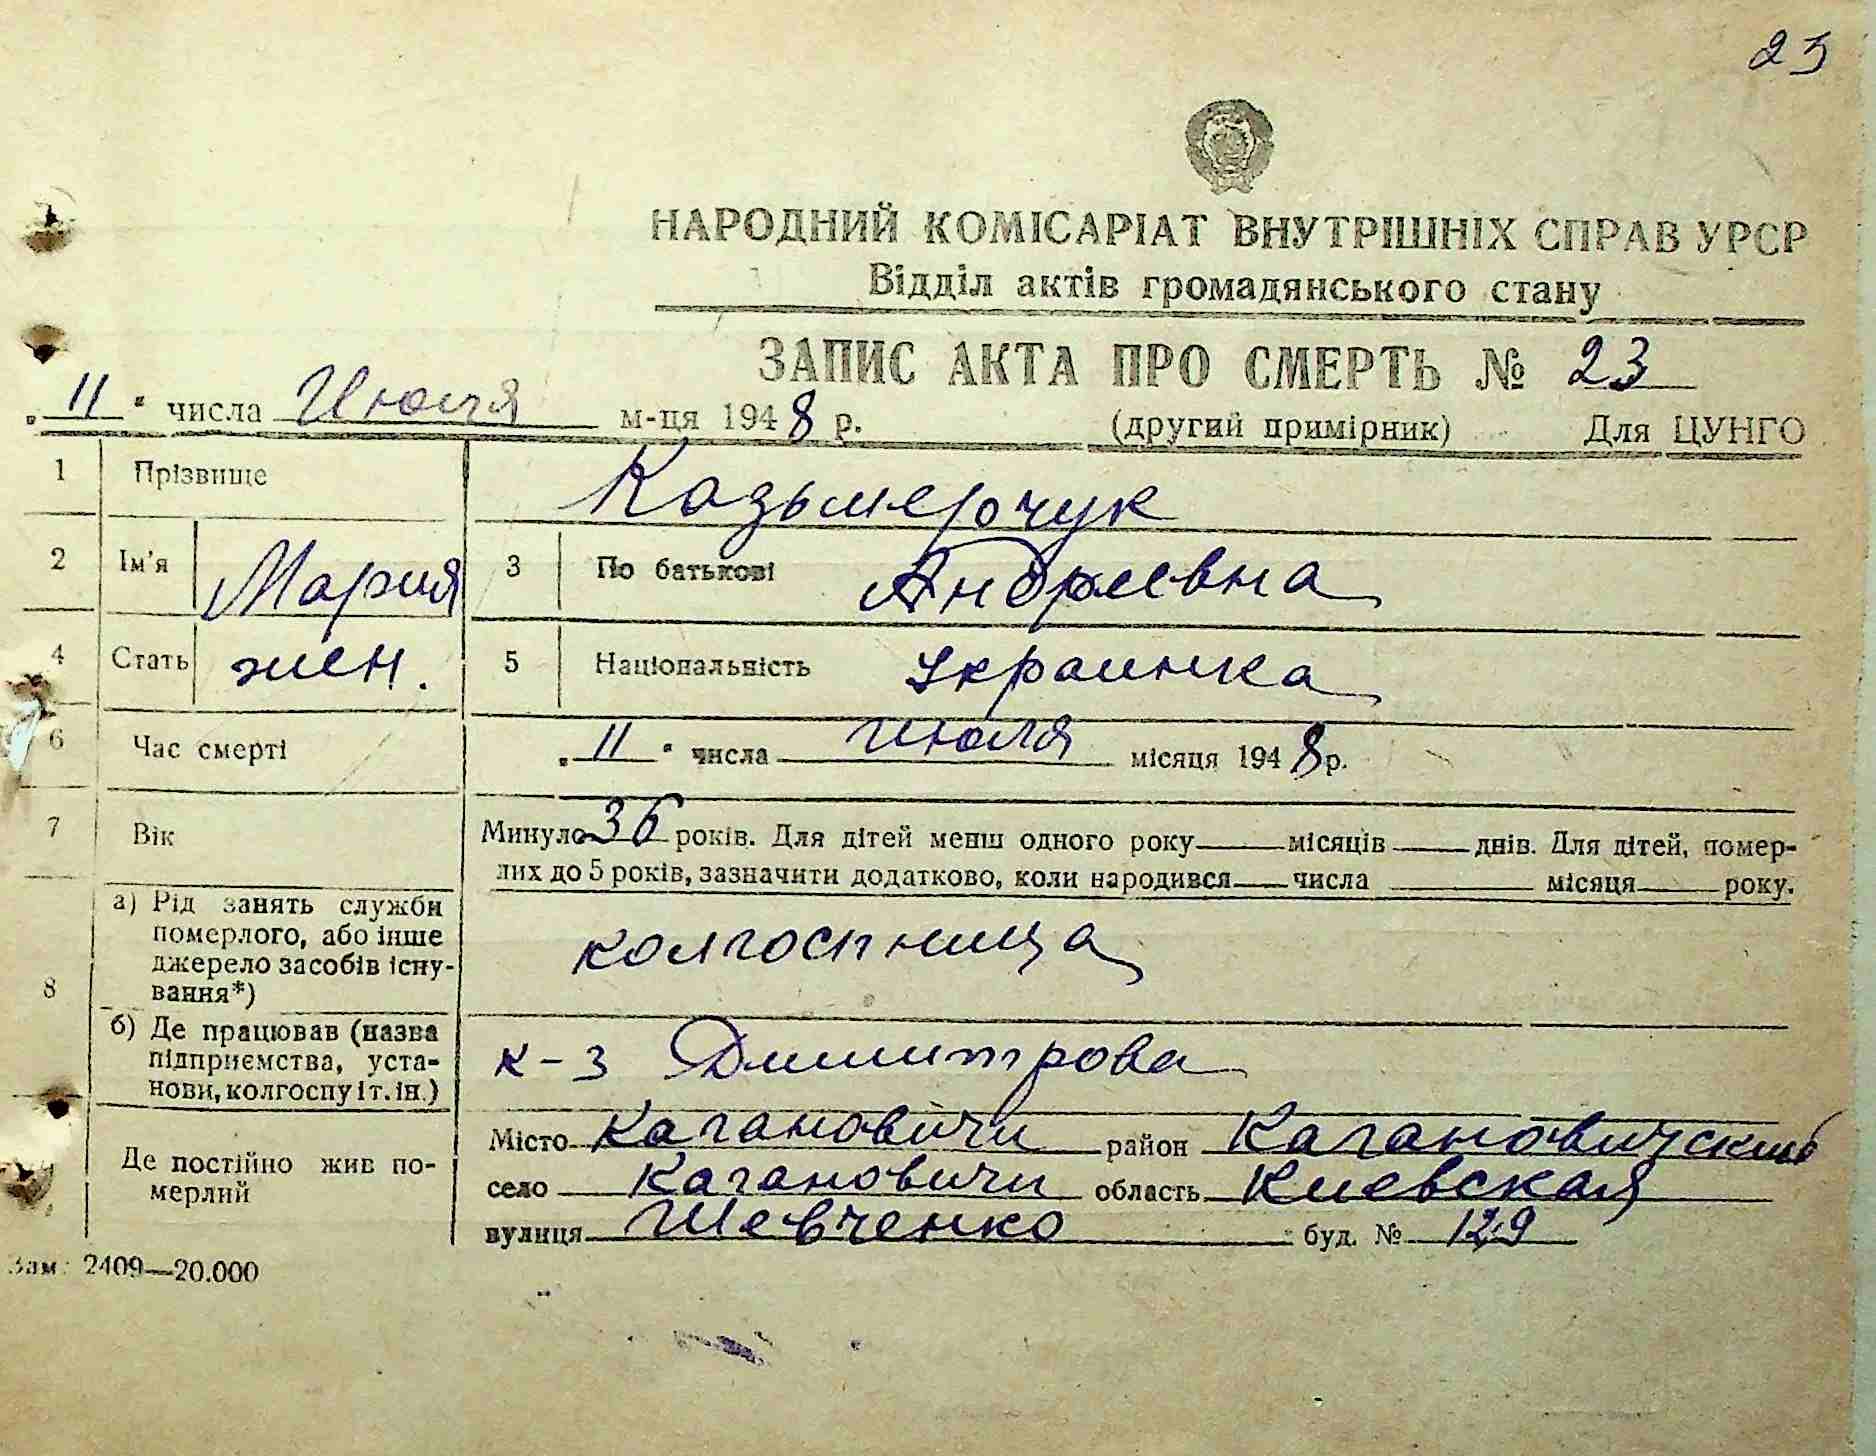 23
НАРОДНИЙ КОМІСАРІАТ ВНУТРІШНІХ СПРАВ УРСР
Відділ актів громадянського стану
ЗАПИС АКТА ПРО СМЕРТЬ № 23
„11“ числа Июля м-ця 1948 р. (другий примірник) Для ЦУНГО
1 Прізвище Казьмерчук
2 Ім'я Мария 3 По батькові Андреевна
4 Стать жен. 5 Національність Украинка
6 Час смерті „11“ числа июля місяця 1948 р.
7 Вік Минуло 36 років. Для дітей менш одного року місяців днів. Для дітей, помер-
лих до 5 років, зазначити додатково, коли народився числа місяця року.
8 а) Рід занять служби
померлого, або інше
джерело засобів існу-
вання*)
колгоспница
б) Де працював (назва
підприємства, уста-
нови, колгоспу і т. ін.)
к-з Димитрова
Де постійно жив по-
мерлий
Місто Кагановичи район Кагановичский
село Кагановичи область Киевская
вулиця Шевченко буд. № 129
Зам. 2409—20.000